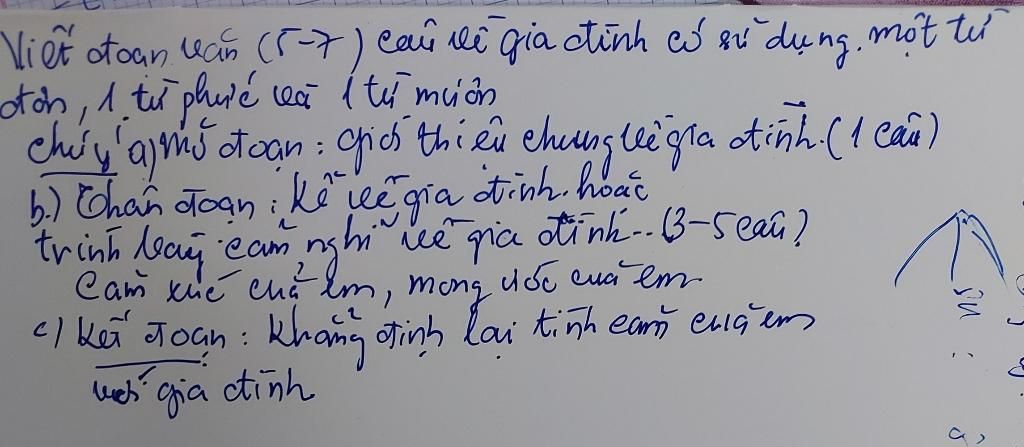 Viết đoạn văn (5-7) câu về gia đình có sử dụng một từ
đơn, 1 từ phức và 1 từ mượn
chú ý a) Mở đoạn: giới thiệu chung về gia đình. (1 câu)
b.) Thân đoạn: Kể về gia đình hoặc
trình bày cảm nghĩ về gia đình.. (3-5 câu)
Cảm xúc của em, mong ước của em
c) Kết đoạn: Khẳng định lại tình cảm của em
với gia đình